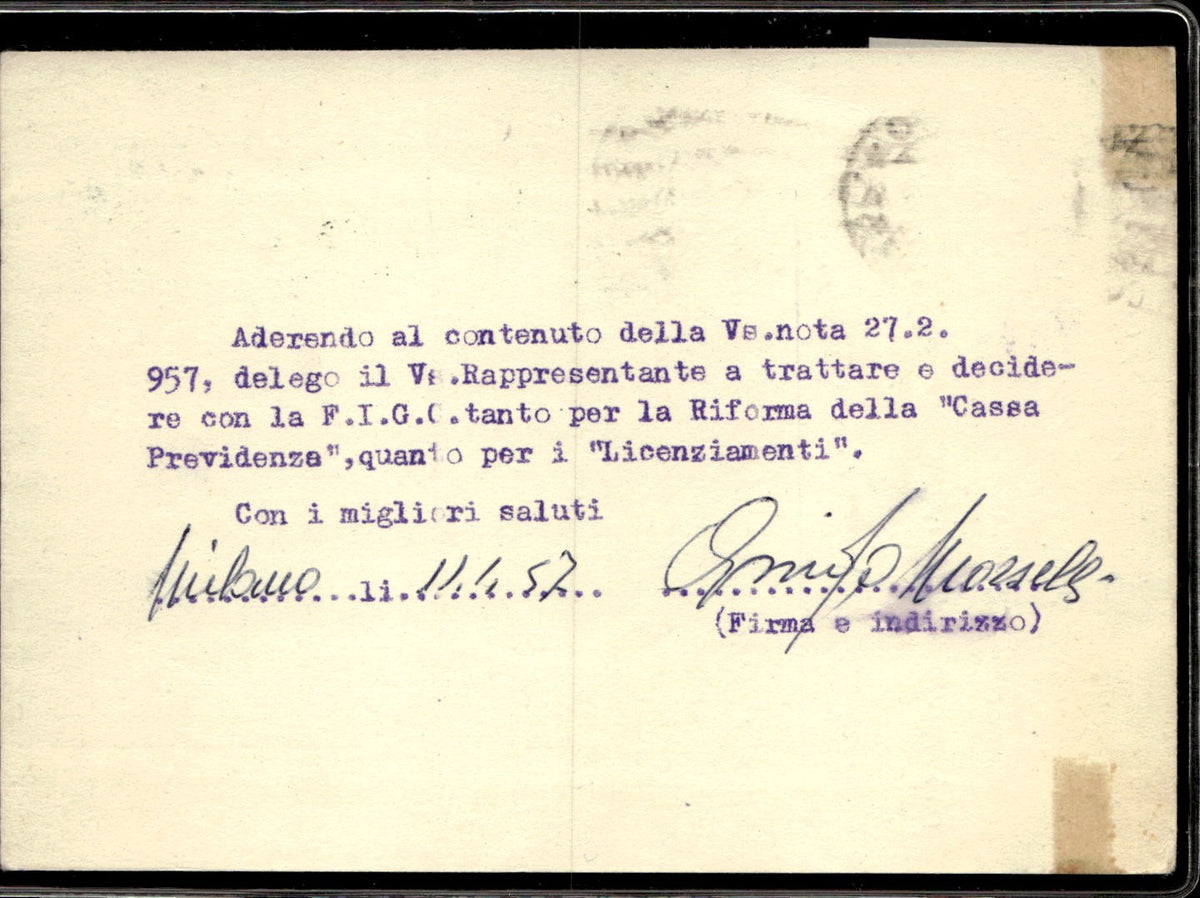 Aderendo al contenuto della Vs.nota 27.2.
957, delego il Vs.Rappresentante a trattare e decide-
re con la F.I.G.C.tanto per la Riforma della "Cassa
Previdenza",quanto per i "Licenziamenti".
Con i migliori saluti
Milano...li. 11.4.57..
(Firma e indirizzo)